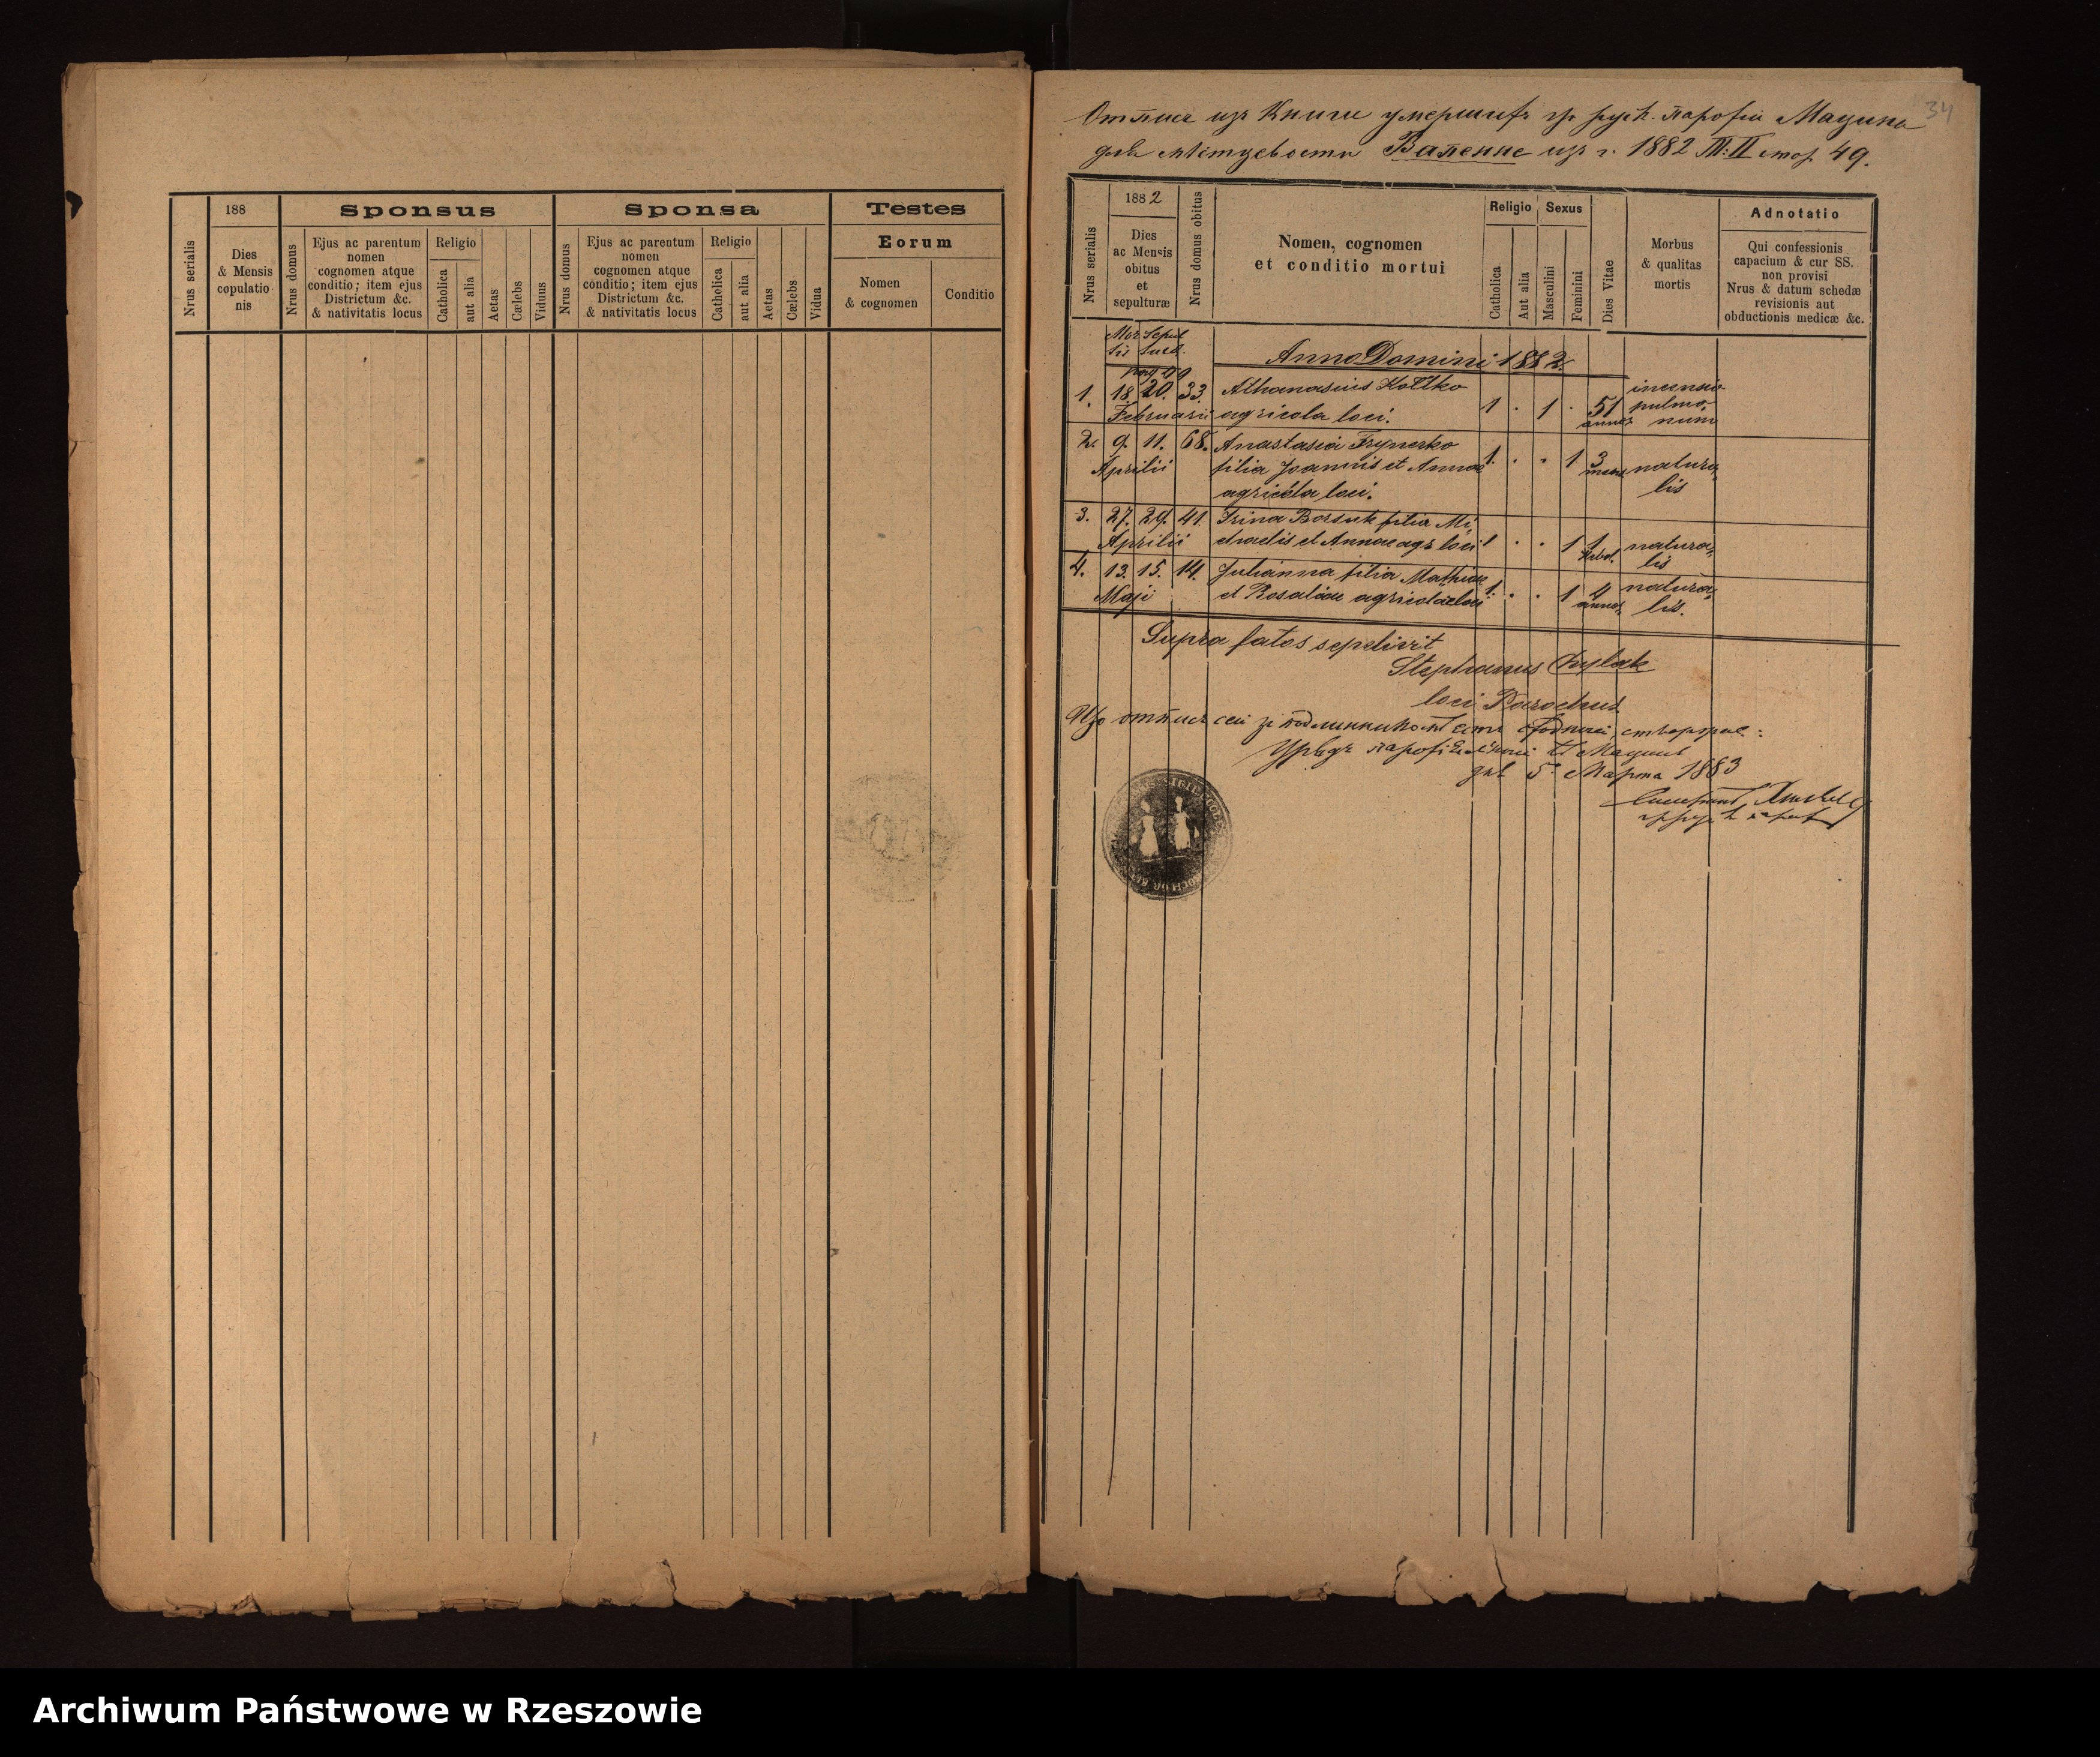 188
Sponsus
Sponsa
Testes
Nrus serialis
Dies
& Mensis
copulatio
nis
Nrus domus
Ejus ac parentum
nomen
cognomen atque
conditio; item ejus
Districtum &c.
& nativitatis locus
Religio
Catholica
aut alia
Aetas
Cœlebs
Viduus
Nrus domus
Ejus ac parentum
nomen
cognomen atque
conditio; item ejus
Districtum &c.
& nativitatis locus
Religio
Catholica
aut alia
Aetas
Cœlebs
Vidua
Eorum
Nomen
& cognomen
Conditio
34
Отпись изъ Книги умершихъ гр. руск. парохіи Мацина
для мѣстцевости Вапенне изъ г. 1882 Т: II стор. 49.
Nrus serialis
1882
Dies
ac Mensis
obitus
et
sepulturæ
Nrus domus obitus
Nomen, cognomen
et conditio mortui
Religio
Catholica
Aut alia
Sexus
Masculini
Feminini
Dies Vitae
Morbus
& qualitas
mortis
Adnotatio
Qui confessionis
capacium & cur SS.
non provisi
Nrus & datum schedæ
revisionis aut
obductionis medicæ &c.
Mor Sepul
tis turæ
Anno Domini 1882.
pag 49
1. 18. 20. 33. Athanasius Kottko 1 . 1 . 51 incensio
Februarii agricola loci. annor pulmo
num
2. 9. 11. 68. Anastasia Fryncko
Aprilii filia Joannis et Annae 1. . . 1 3 mens natura
agricola loci. lis
3. 27. 29. 41. Irina Borsuk filia Mi
Aprilii chaelis et Annae agr loci 1 . . 1 1 natura
lis
4. 13. 15. 14. Julianna filia Mathiae
Maji et Rosaliae agricolae loci 1. . . 1 4 annor natura
lis.
Supra fatos sepelivit
Stephanus Chylak
loci Parochus
Что отпись сей зъ подлинникомъ есть
Урядъ парохіальный въ Мацинѣ
дня 5 Марта 1883